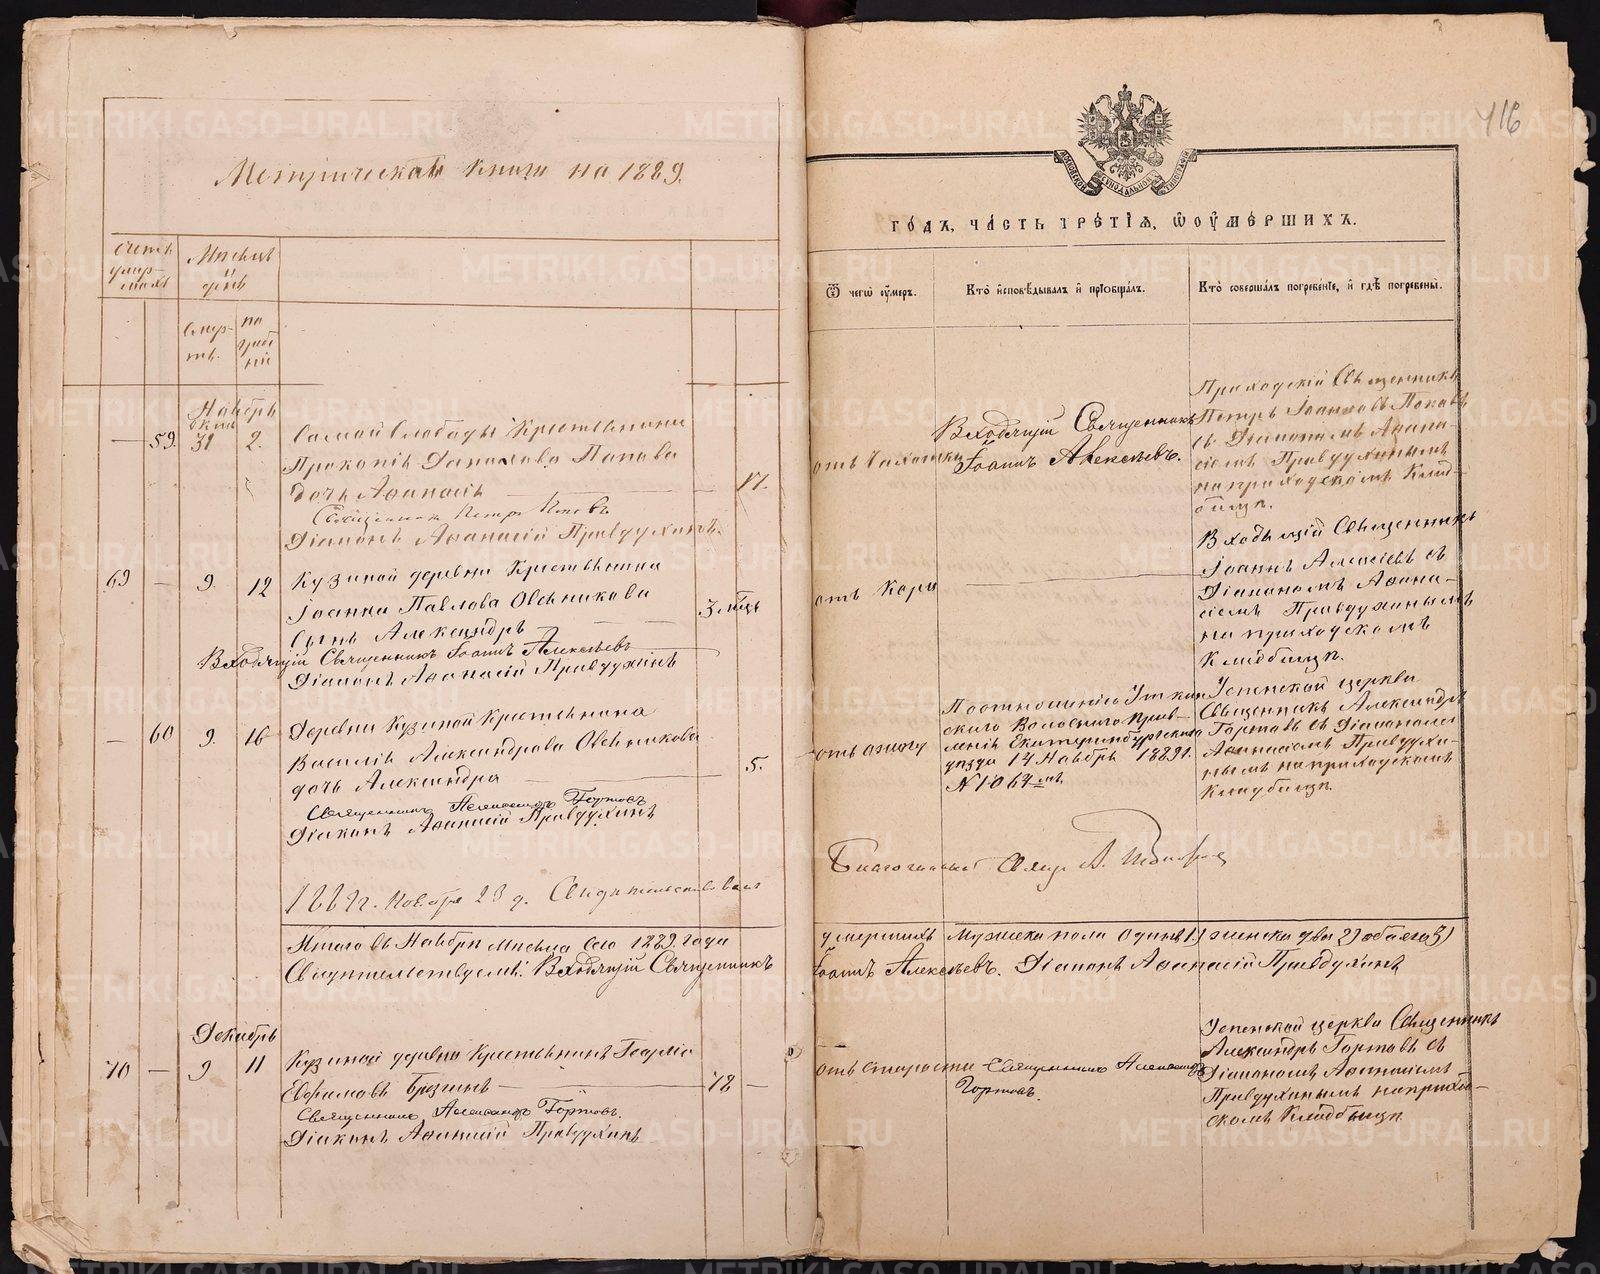 Метрическая книга на 1889.
Счетъ умер-
шихъ
Мѣсяцъ
и
день
Смер-
ти.
по
гребе
нія
Ноябрь
Окт.
59. 31 2. Самой Слободы Крестьянина
Прокопія Попова
дочь Афанасія 17.
Священник Петръ Поповъ
Діаконъ Афанасій Правдухинъ.
69 9. 12 Кузиной деревни Крестьянина
Іоанна Павлова Овсянникова
Сынъ Александръ 3 мѣсц
Входящій Священникъ Іоаннъ Алексѣевъ
Діаконъ Афанасій Правдухинъ
60 9. 16 Деревни Кузиной Крестьянина
Василія Александрова Овсянникова
дочь Александра 5.
Священникъ Александръ Гортовъ
Діаконъ Афанасій Правдухинъ
1889 г. Ноября 23 д. Свидѣтельствовалъ
Итого въ Ноябрѣ мѣсяцѣ сего 1889. года
Свидѣтельствуемъ: Входящій Священникъ
Декабрь
70 9 11 Кузиной деревни Крестьянинъ Георгій
Ефимовъ Брезинъ 78
Священникъ Александръ Гортовъ.
Діаконъ Афанасій Правдухинъ
416
МОСКОВСКОЙ СѴНОДАЛЬНОЙ ТИПОГРАФІИ
ГОДЪ, ЧАСТЬ ТРЕТІѦ, Ѡ ОУМЕРШИХЪ.
Ѿ чегѡ оумеръ.
Кто исповѣдывалъ и пріобщалъ.
Кто совершалъ погребеніе, и гдѣ погребены.
отъ Чахотки
Входящій Священникъ
Іоаннъ Алексѣевъ.
Приходскій Священникъ
Петръ Іоанновъ Поповъ
съ Діакономъ Афана-
сіемъ Правдухинымъ
на приходскомъ Клад-
бищѣ.
отъ Кори
Входящій Священникъ
Іоаннъ Алексѣевъ съ
Діакономъ Афана-
сіемъ Правдухинымъ
на приходскомъ
Кладбищѣ.
отъ ожогу
По отношенію Уткин
скаго Волостнаго Прав-
ленія Екатеринбургскаго
уѣзда 14 Ноября 1889 г.
№ 1067 мъ.
Успенской церкви
Священникъ Александръ
Гортовъ съ Діакономъ
Афанасіемъ Правдухи-
нымъ на приходскомъ
Кладбищѣ.
Благочинный Свящ А.
умершихъ Мужска пола одинъ 1) женска два 2) обоего 3)
Іоаннъ Алексѣевъ. Діаконъ Афанасій Правдухинъ
отъ Старости
Священникъ Александръ
Гортовъ.
Успенской церкви Священникъ
Александръ Гортовъ съ
Діакономъ Афанасіемъ
Правдухинымъ на прихо-
скомъ Кладбищѣ
METRIKI.GASO-URAL.RU